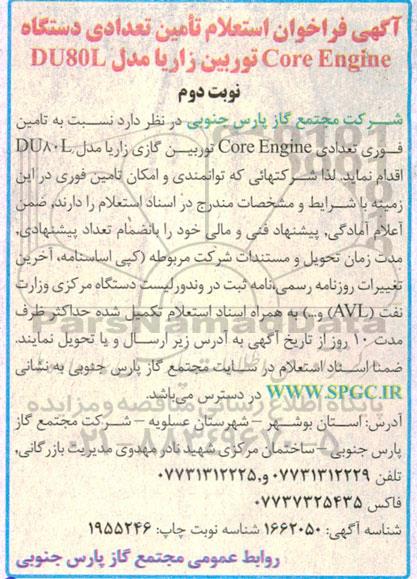 آگهی فراخوان استعلام تأمین تعدادی دستگاه
Core Engine توربین زاریا مدل DU80L
نوبت دوم
شرکت مجتمع گاز پارس جنوبی در نظر دارد نسبت به تامین
فوری تعدادی Core Engine توربین گازی زاریا مدل DU۸۰L
اقدام نماید. لذا شرکتهائی که توانمندی و امکان تامین فوری در این
زمینه با شرایط و مشخصات مندرج در اسناد استعلام را دارند, ضمن
آعلام آمادگی, پیشنهاد فنی و مالی خود را بانضمام تعداد پیشنهادی,
مدت زمان تحویل و مستندات شرکت مربوطه (کپی اساسنامه, آخرین
تغییرات روزنامه رسمی،نامه ثبت در وندورلیست دستگاه مرکزی وزارت
نفت (AVL) و...) به همراه اسناد استعلام تکمیل شده حداکثر ظرف
مدت ۱۰ روز از تاریخ آگهی به آدرس زیر ارسال و یا تحویل نمایند.
ضمنا اسناد استعلام در سایت مجتمع گاز پارس جنوبی به نشانی
WWW.SPGC.IR در دسترس می‌باشد.
آدرس: استان بوشهر – شهرستان عسلویه – شرکت مجتمع گاز
پارس جنوبی – ساختمان مرکزی شهید نادر مهدوی مدیریت بازرگانی,
تلفن ۰۷۷۳۱۳۱۲۲۲۹ و ۰۷۷۳۱۳۱۲۲۲۵
فاکس ۰۷۷۳۷۳۲۵۴۳۵
شناسه آگهی: ۱۶۶۲۰۵۰ شناسه نوبت چاپ: ۱۹۵۵۲۴۶
روابط عمومی مجتمع گاز پارس جنوبی
ParsNamadData
پایگاه اطلاع رسانی مناقصه و مزایده
۰۲۱-۸۸۳۴۹۶۷۰-۵